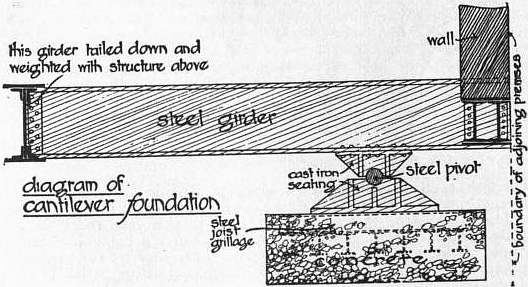 this girder tailed down and
weighted with structure above
wall
steel girder
boundary of adjoining premises
cast iron
seating
steel pivot
diagram of
cantilever foundation
steel
joist
grillage
concrete